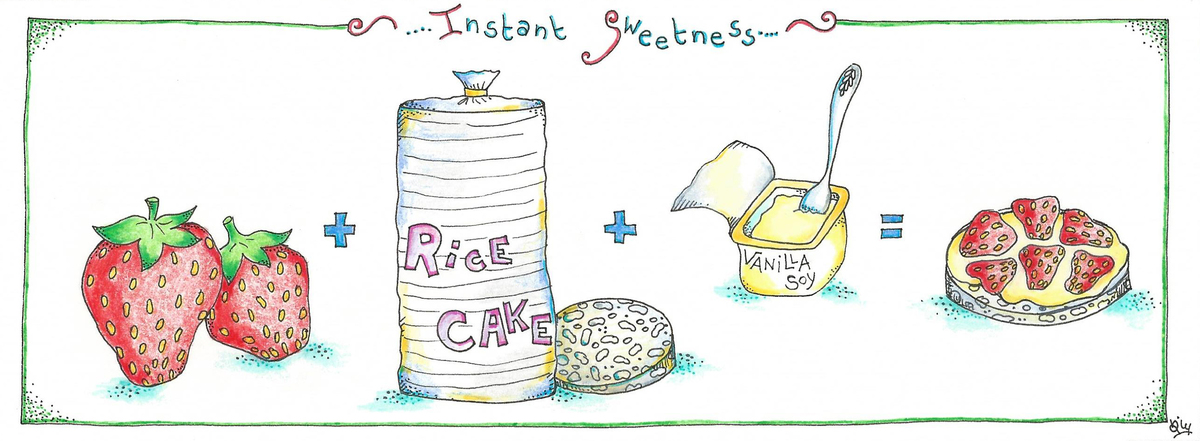 ....Instant Sweetness....
RicE
CAKE
VANiLLA
SOY